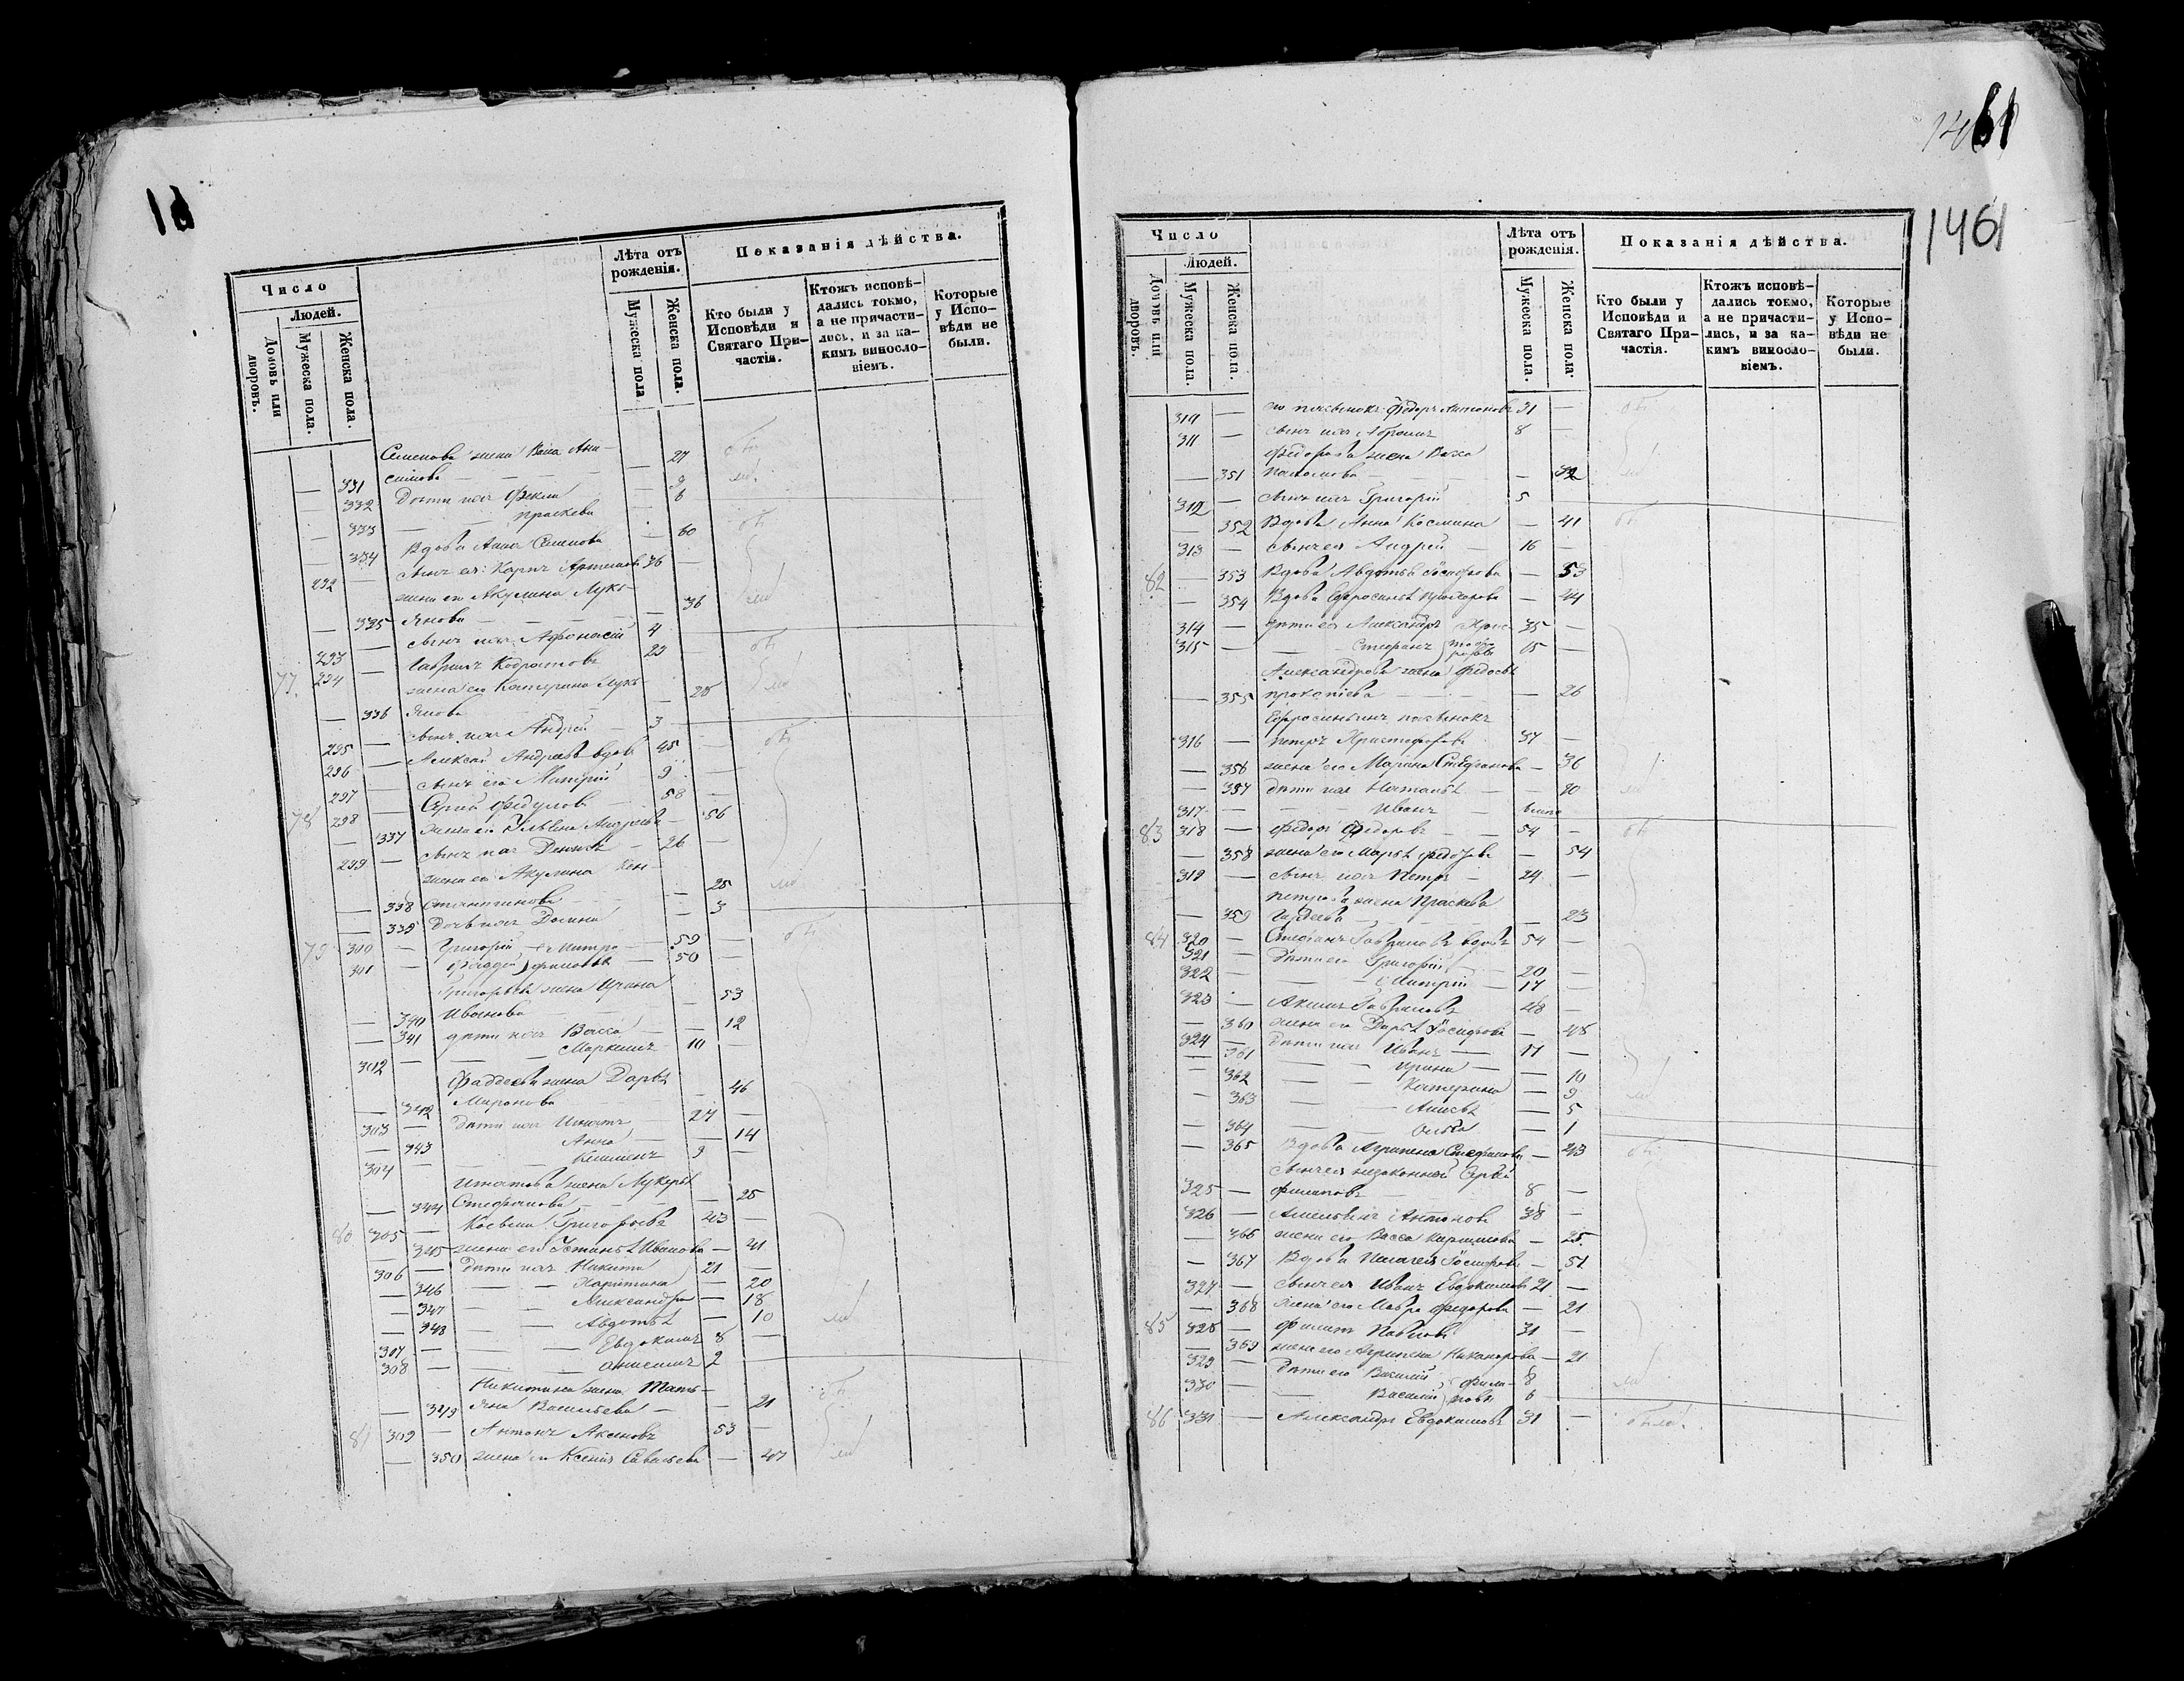 61
Число
Людей.
Домовъ или дворовъ.
Мужеска пола.
Женска пола.
Лѣта отъ рожденія.
Мужеска пола
Женска пола.
Показанія дѣйства.
Кто были у Исповѣди и Святаго Причастія.
Ктожъ исповѣдались токмо, а не причастились, и за какимъ винословіемъ.
Которые у Исповѣди не были.
Семенова жена Васа Ани- 27
— 331 симова — —
— 332 Дѣти ихъ Фекла — 9
— 333 — Праскева — 6
— 334 Вдова Анна Семенова — 60
292 — сынъ ея Карпъ Артемовъ 36 —
жена его Акулина Лукь-
— 335 янова — — — — 36
293 — сынъ ихъ Афонасій 4
77 294 — Гаврилъ Кодратовъ 23
жена его Катерина Лукь-
— 336 янова — 25
295 — сынъ ихъ Андрей — 3 —
296 — Алексей Андреевъ вдовъ 45 —
297 — сынъ его Митрій 9 —
78 298 — Сергей Федуловъ 58 —
— 337 жена его Ульяна Андреева — 56
299 — сынъ ихъ Денисъ — 26 —
жена его Акулина Кон-
— 338 стантинова — — 25
— 339 Дочь ихъ Домна — 3
79 300 — Григорій — 59 —
301 — Фаддей Филиповы — 50 —
Григорьева жена Ирина
— 340 Иванова — — 53
— 341 дѣти ихъ Васса — — 12
302 — — — Маркелъ 10 —
Фаддеева жена Дарья
— 342 Миронова — 46
303 — Дѣти ихъ Игнатъ 27 —
— 343 — Анна — — 14
304 — — — Климентъ 9 —
Игнатова жена Лукерья
— 344 Стефанова — — 25
80 305 — Косьма Григорьевъ 43 —
— 345 жена его Устинья Иванова — 41
306 — Дѣти ихъ Никита 21 —
— 346 — — Харитина — 20
— 347 — — Александра — 18
— 348 — — Авдотья — 10
307 — — — Евдокимъ 8 —
308 — — — Анисимъ 2
Никитина жена Тать-
— 349 яна Васильева — — 21
81 309 — Антонъ Аксеновъ 53 —
— 350 жена его Ксенія Савельева — 47
61
1461
Число
Людей.
Домовъ или дворовъ.
Мужеска пола.
Женска пола.
Лѣта отъ рожденія.
Мужеска пола.
Женска пола.
Показанія дѣйства.
Кто были у Исповѣди и Святаго Причастія.
Ктожъ исповѣдались токмо, а не причастились, и за какимъ винословіемъ.
Которые у Исповѣди не были.
310 — его пасынокъ Федоръ Антоновъ 31 —
311 — сынъ ихъ Абрамъ 8 —
Федорова жена Васса
— 351 — 32
312 — сынъ ихъ Григорій 5 —
— 352 Вдова Анна Космина — 41
313 — сынъ ея Андрей — 16 —
82 — 353 Вдова Авдотья Іосифова — 53
— 354 Вдова Ефросинья Прохорова — 44
314 — дѣти ея Александръ 35 —
315 — — Стефанъ 15 —
Александрова жена Федосья
— 355 Прокопіева — — — 26
Ефросиньинъ пасынокъ
316 — Петръ Христофоровъ 37 —
— 356 жена его Марина Стефанова — 36
— 357 дѣти ихъ Наталья — — 10
317 — — Иванъ —
83 318 — Федоръ Федоровъ — 54 —
— 358 жена его Марья Федорова — 54
319 — сынъ ихъ Петръ — 24 —
Петрова жена Праскева
— 359 Гордеева — — 23
84 320 — Стефанъ Гавриловъ вдовъ 54 —
321 — Дѣти его Григорій — 20 —
322 — — Митрій — 17 —
323 — Акимъ Гавриловъ 48 —
— 360 жена его Дарья Іосифова — 48
324 — Дѣти ихъ Иванъ — 17 —
— 361 — — Ирина — — 10
— 362 — — Катерина — 9
— 363 — — Анисья — 5
— 364 — — Ольга — 1
— 365 Вдова Агрипена Стефанова — 43
сынъ ея незаконный Сергей
325 — Филиповъ — 8 —
326 — Амельянъ Антоновъ 38 —
— 366 жена его Васса — 25
— 367 Вдова Пелагея Іосифова — 51
327 — сынъ ея Иванъ Евдокимовъ 21 —
— 368 жена его Мавра Федорова — 21
85 328 — Филипъ Павловъ 31 —
— 369 жена его Агрипена Никанорова — 21
329 — Дѣти его Василій Фили- 8
330 — — Василій повы 6 —
86 331 — Александръ Евдокимовъ 31 —